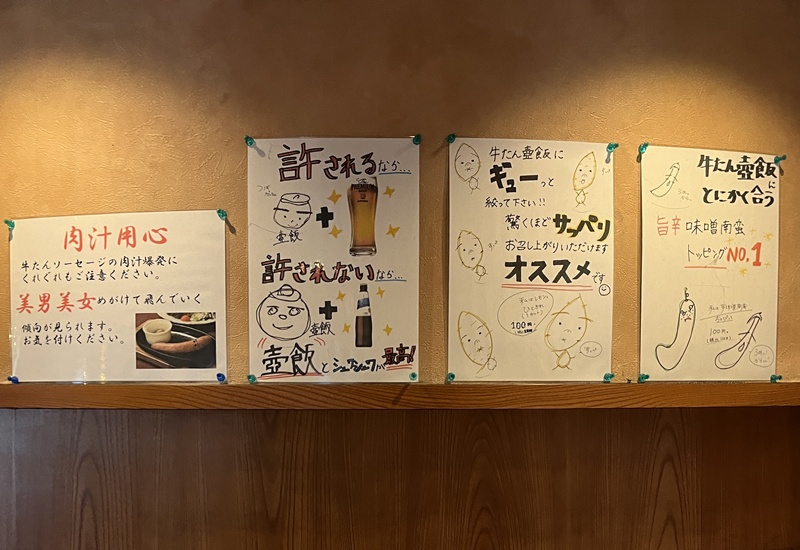 肉汁用心
牛たんソーセージの肉汁爆発に
くれぐれもご注意ください。
美男美女めがけて飛んでいく
傾向が見られます。
お気を付けください。
許されるなら…
壺飯
+
許されないなら…
+
壺飯
壺飯とシュワシュワが最高!
牛たん壺飯に
ギューっと
絞って下さい!!
驚くほどサッパリ
お召し上がりいただけます
オススメです
100円
牛たん壺飯に
とにかく合う
旨辛味噌南蛮
トッピングNO.1
100円